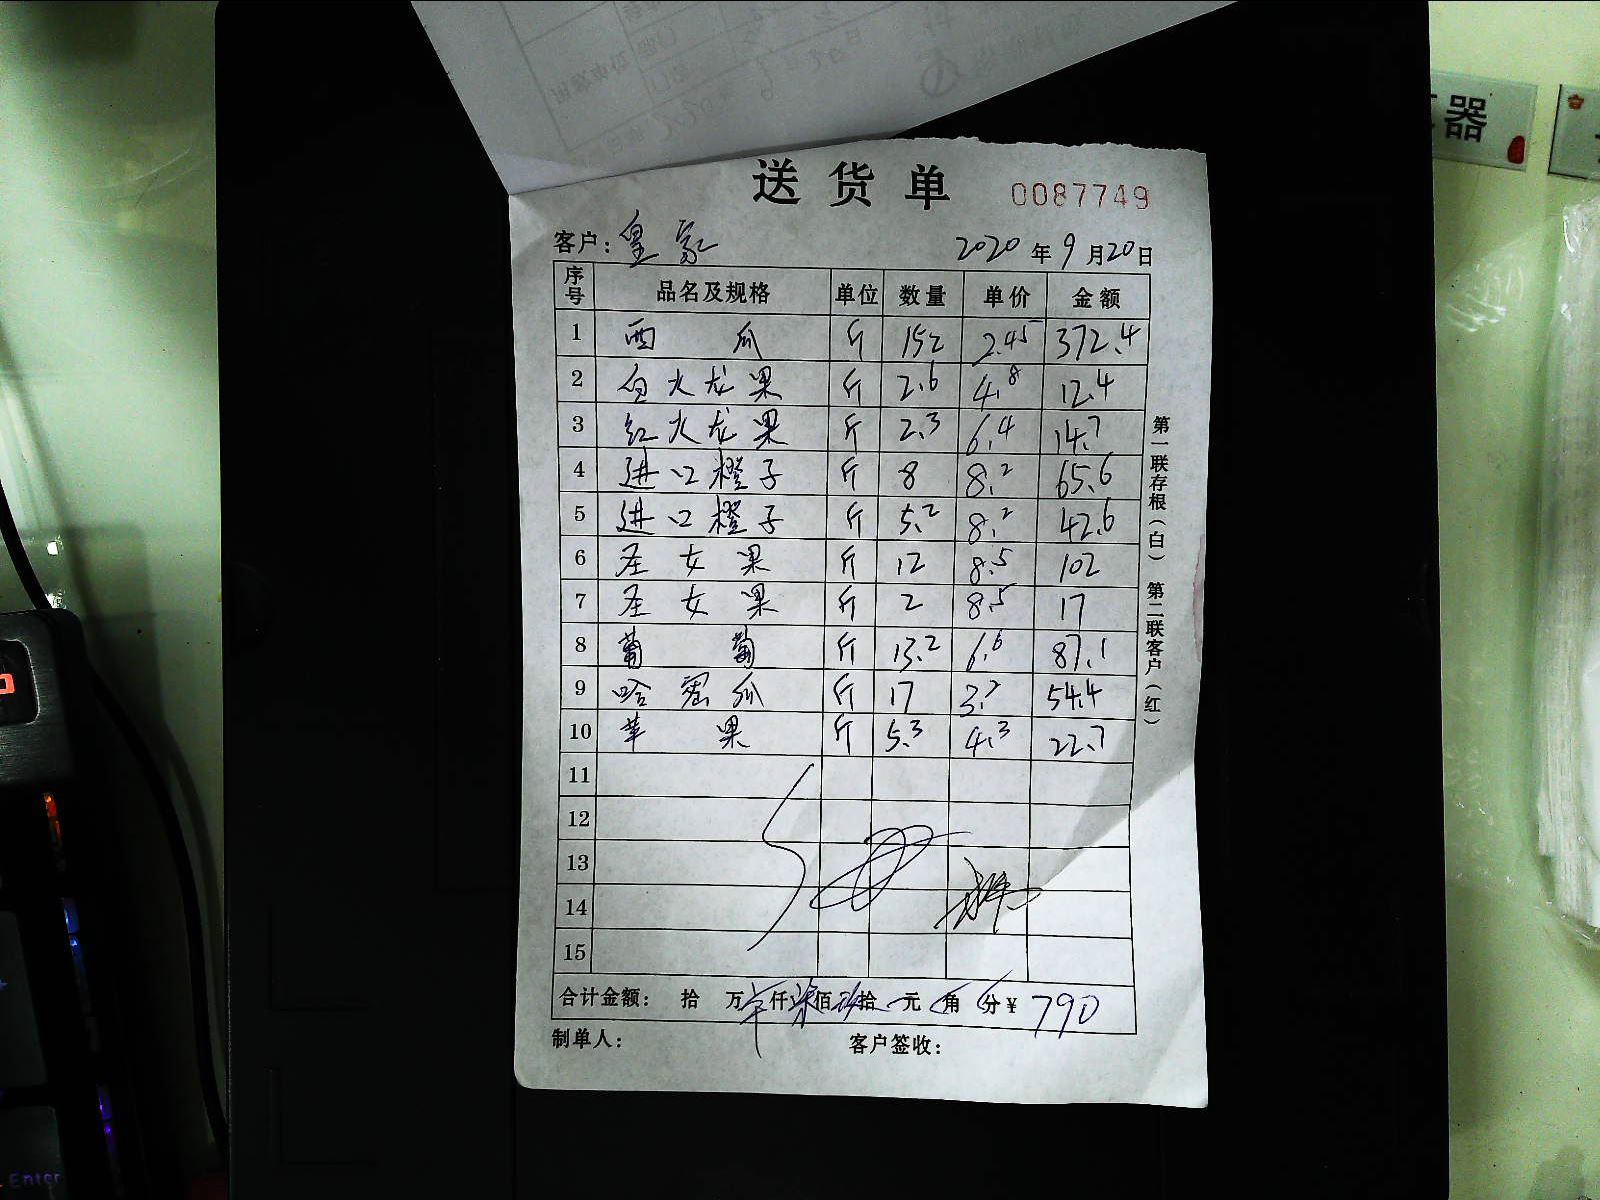 送货单 0087749
客户：皇家 2020年9月20日
序号 品名及规格 单位 数量 单价 金额
1 西瓜 斤 152 2.45 372.4
2 白火龙果 斤 2.6 4.8 12.4
3 红火龙果 斤 2.3 6.4 14.7
4 进口橙子 斤 8 8.2 65.6
5 进口橙子 斤 5.2 8.2 42.6
6 圣女果 斤 12 8.5 102
7 圣女果 斤 2 8.5 17
8 葡萄 斤 13.2 6.6 87.1
9 哈密瓜 斤 17 3.2 54.4
10 苹果 斤 5.3 4.3 22.7
11
12
13
14
15
合计金额： 拾 万 仟柒佰玖拾 元 角 分¥ 790
制单人： 客户签收：
第一联存根（白） 第二联客户（红）
器
Enter